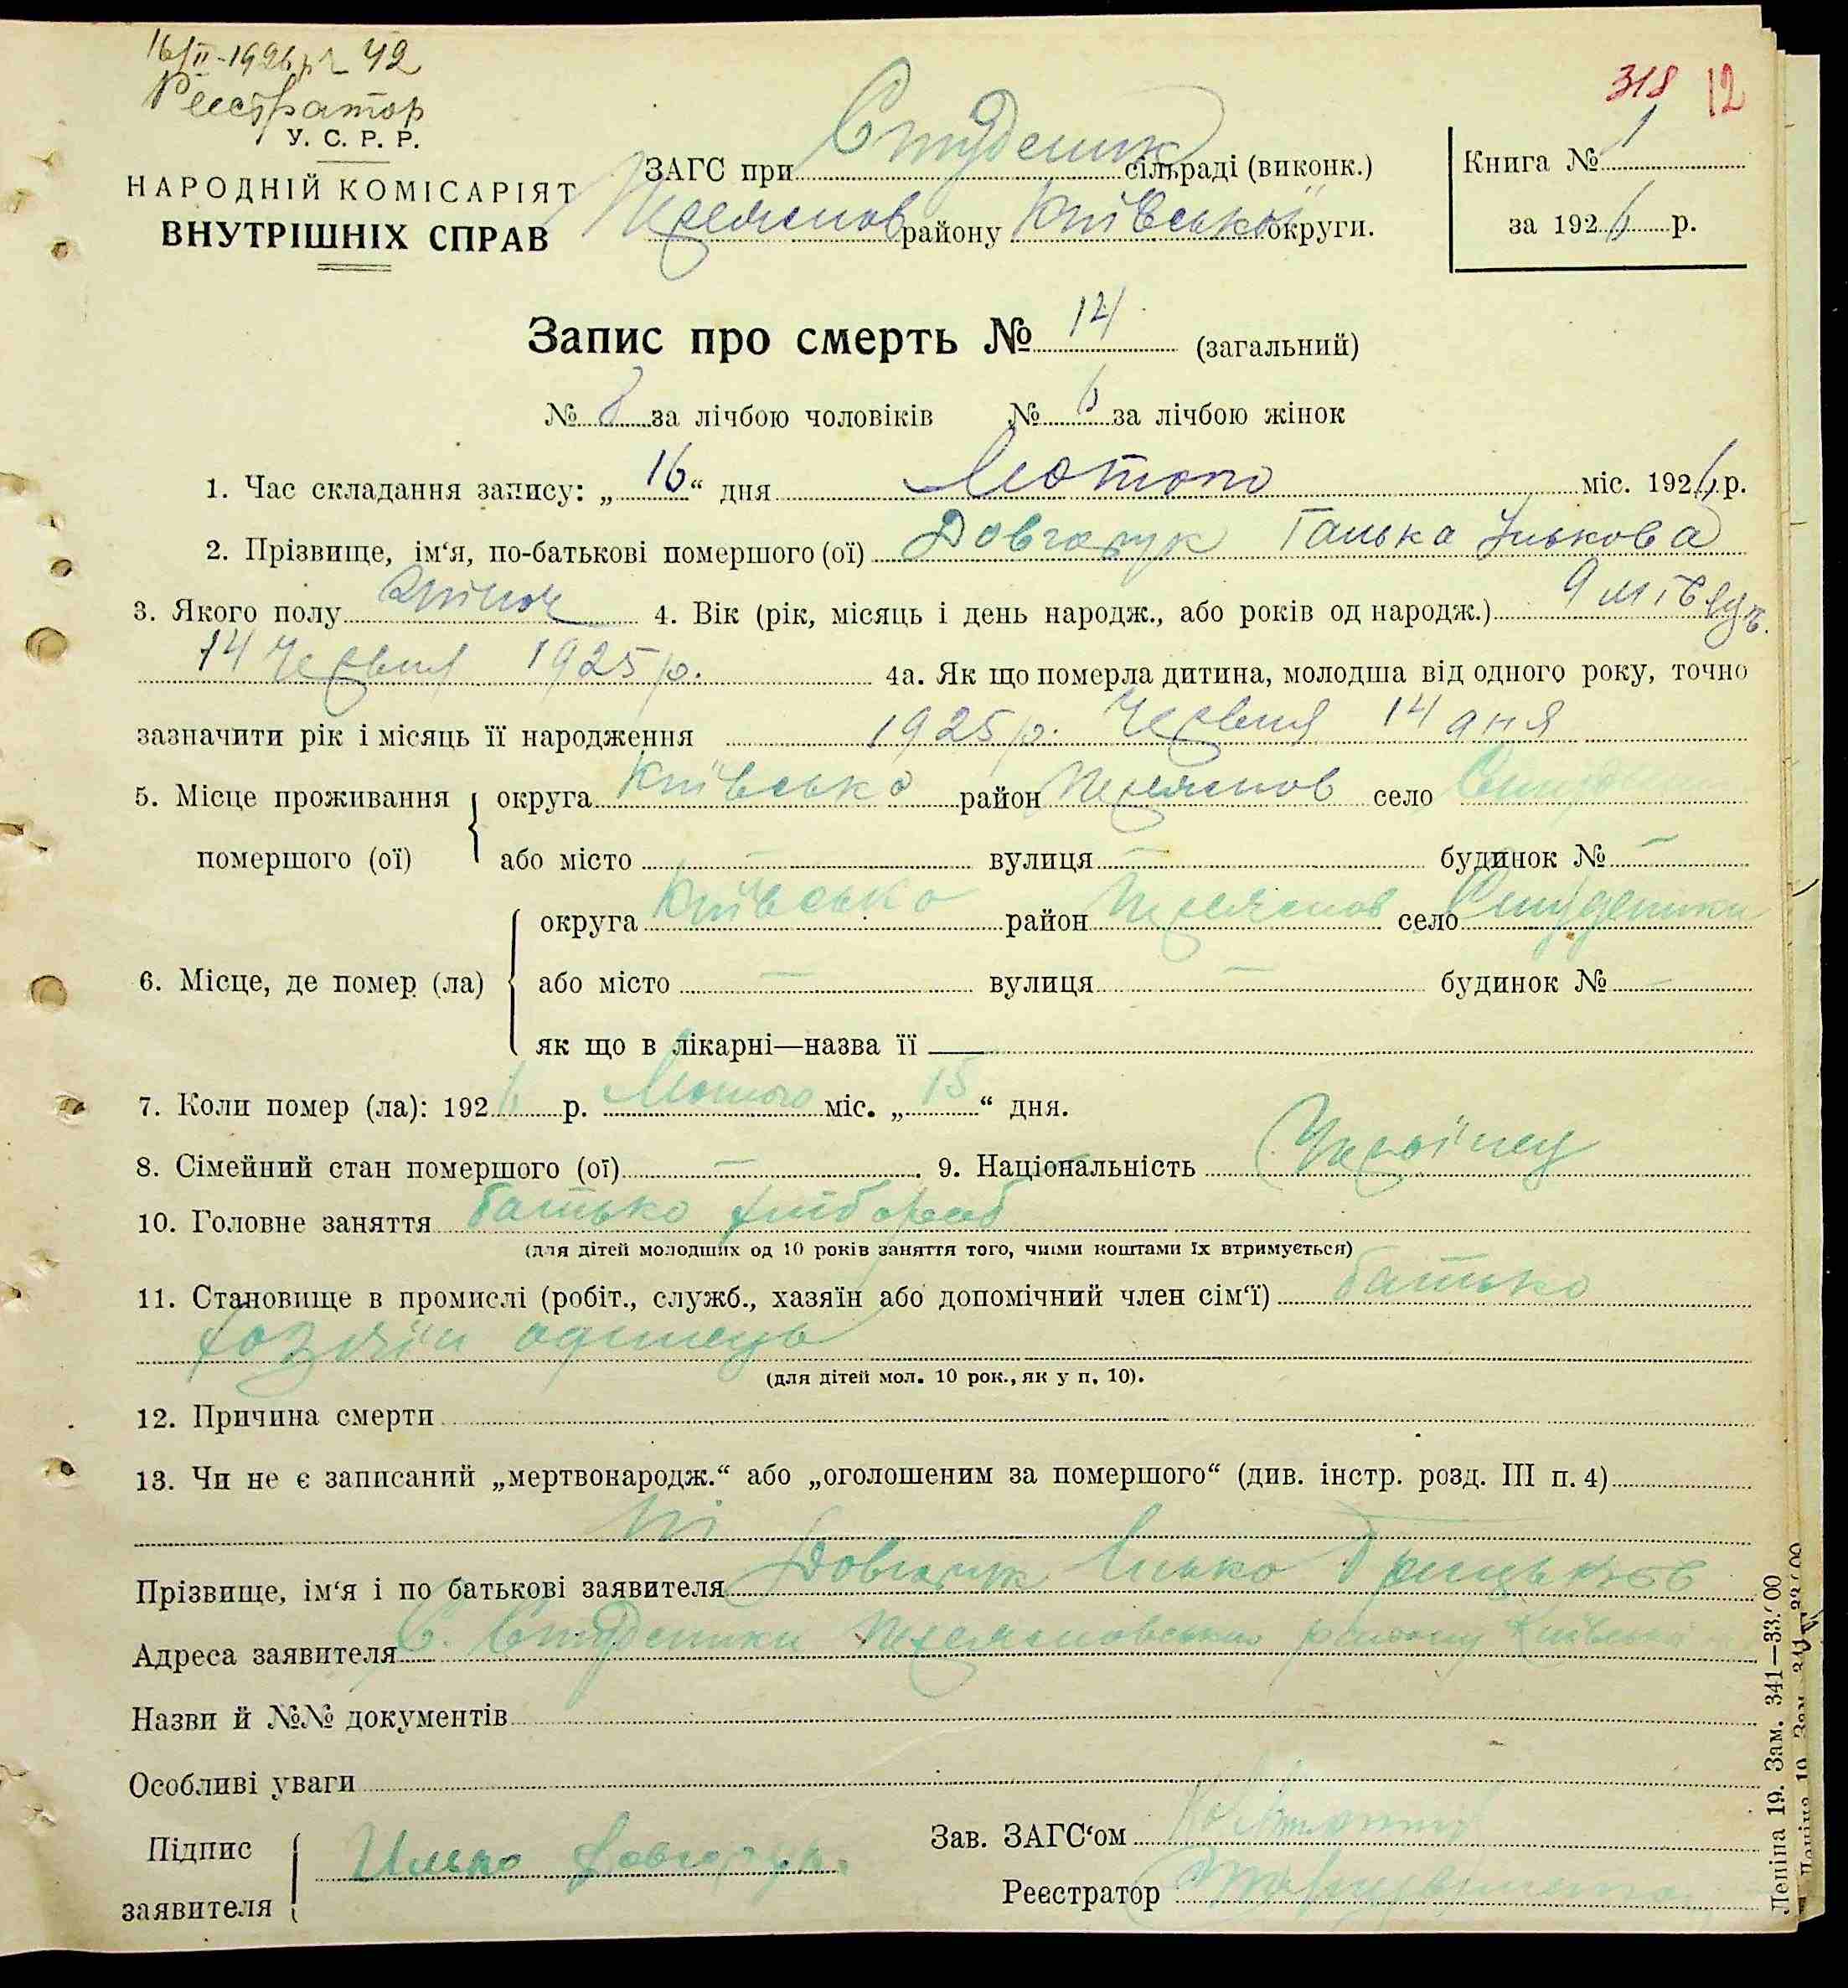 16/II-1926 р. 42
Реєстратор
318 12
У. С. Р. Р.
НАРОДНІЙ КОМІСАРІЯТ
ВНУТРІШНІХ СПРАВ
ЗАГС при Студеник сільраді (виконк.)
Переяслов району Київської округи.
Книга № 1
за 1926 р.
Запис про смерть № 14 (загальний)
№ 8 за лічбою чоловіків № 6 за лічбою жінок
1. Час складання запису: „16“ дня Лютого міс. 1926 р.
2. Прізвище, ім‘я, по-батькові помершого (ої) Довгорук Галька Ількова
3. Якого полу Жіноч 4. Вік (рік, місяць і день народж., або років од народж.) 9 місяц.
14 Червня 1925 р. 4а. Як що померла дитина, молодша від одного року, точно
зазначити рік і місяць її народження 1925 р. Червня 14 дня
5. Місце проживання округа Київсько район Переяслов село
помершого (ої) або місто — вулиця — будинок № —
округа Київсько район Переяслов село Студеники
6. Місце, де помер (ла) або місто — вулиця — будинок № —
як що в лікарні—назва її —
7. Коли помер (ла): 1926 р. Лютого міс. „15“ дня.
8. Сімейний стан помершого (ої) — 9. Національність Українец
10. Головне заняття батько хлібороб
(для дітей молодших од 10 років заняття того, чиїми коштами їх втримується)
11. Становище в промислі (робіт., служб., хазяїн або допомічний член сім‘ї) батько
хозяїн одинець
(для дітей мол. 10 рок., як у п. 10).
12. Причина смерти
13. Чи не є записаний „мертвонародж.“ або „оголошеним за помершого“ (див. інстр. розд. III п. 4)
Ні
Прізвище, ім‘я і по батькові заявителя Довгорук Илько Грицьков
Адреса заявителя С. Студеники Переясловського району Київської
Назви й №№ документів
Особливі уваги
Підпис
заявителя Илько Довгорук.
Зав. ЗАГС‘ом
Реєстратор
Леніна 19. Зам. 341—33.000